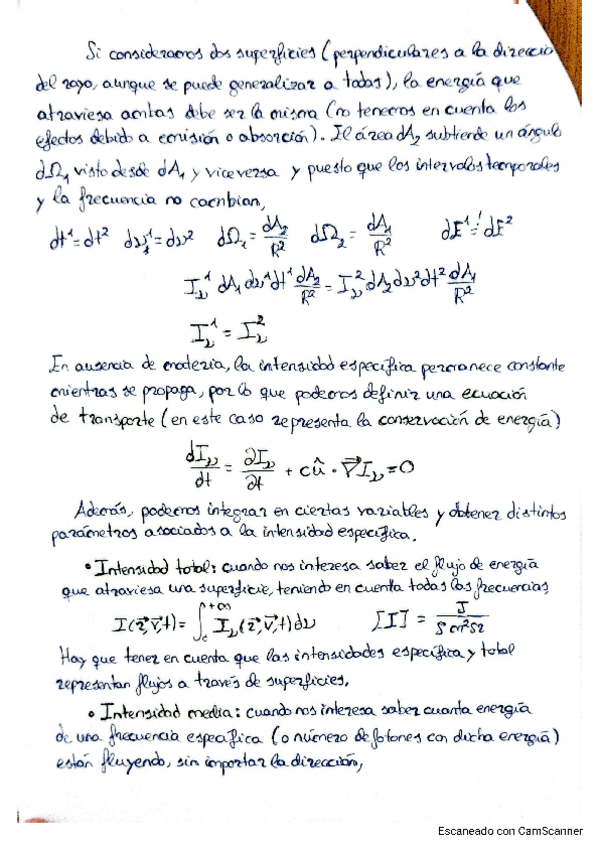 Si consideramos dos superficies (perpendiculares a la direcció
del rayo, aunque se puede generalizar a todas), la energía que
atraviesa ambas debe ser la misma (no tenemos en cuenta los
efectos debido a emisión o absorción). El área dA₂ subtiende un ángulo
dΩ₁ visto desde dA₁ y viceversa y puesto que los intervalos temporales
y la frecuencia no cambian,
dt¹=dt² dν¹=dν² dΩ₁=dA₂/R² dΩ₂=dA₁/R² dE¹=dE²
I_ν¹ dA₁dν¹dt¹ dA₂/R² = I_ν² dA₂dν²dt² dA₁/R²
I_ν¹ = I_ν²
En ausencia de materia, la intensidad específica permanece constante
mientras se propaga, por lo que podemos definir una ecuación
de transporte (en este caso representa la conservación de energía)
dI_ν/dt = ∂I_ν/∂t + cû·∇⃗I_ν=0
Además, podemos integrar en ciertas variables y obtener distintos
parámetros asociados a la intensidad específica.
• Intensidad total: cuando nos interesa saber el flujo de energía
que atraviesa una superficie, teniendo en cuenta todas las frecuencias,
Hay que tener en cuenta que las intensidades específica y total
representan flujos a través de superficies,
• Intensidad media: cuando nos interesa saber cuanta energía
de una frecuencia específica (o número de fotones con dicha energía)
están fluyendo, sin importar la dirección,
Escaneado con CamScanner